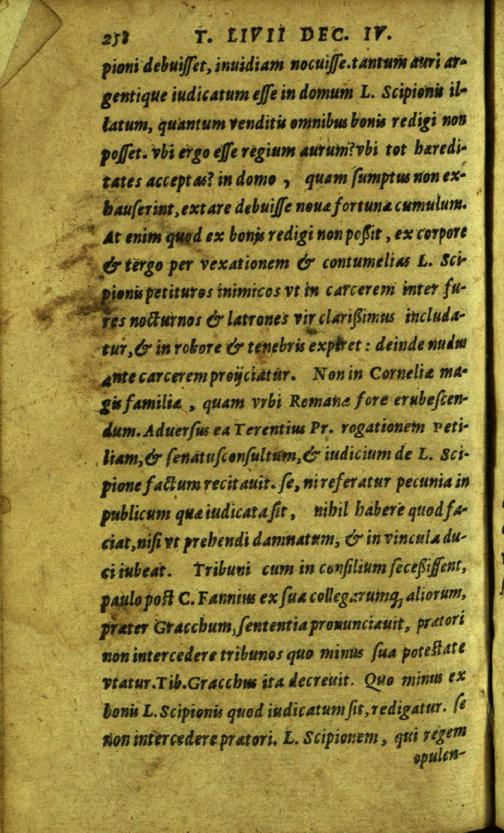 258 T. LIVII DEC. IV.
pioni debuiſſet, inuidiam nocuiſſe.tantum auri ar-
gentique iudicatum eſſe in domum L. Scipionis il-
latum, quantum venditis omnibus bonis redigi non
poſſet. vbi ergo eſſe regium aurum?vbi tot hæredi-
tates acceptas? in domo , quam ſumptus non ex-
hauſerint, extare debuiſſe nouæ fortunæ cumulum.
At enim quod ex bonis redigi non poſſit , ex corpore
& tergo per vexationem & contumelias L. Sci-
pionis petituros inimicos vt in carcerem inter fu-
res nocturnos & latrones vir clariſſimus includa-
tur,& in robore & tenebris expiret : deinde nudus
ante carcerem proijciatur. Non in Corneliæ ma-
gis familiæ , quam vrbi Romanæ fore erubeſcen-
dum. Aduerſus ea Terentius Pr. rogationem Peti-
liam,& ſenatuſconſultum,& iudicium de L. Sci-
pione factum recitauit. ſe, ni referatur pecunia in
publicum quæ iudicata ſit , nihil habere quod fa-
ciat,niſi vt prehendi damnatum, & in vincula du-
ci iubeat. Tribuni cum in conſilium ſeceſſiſſent,
paulo poſt C. Fannius ex ſua collegarumq; aliorum,
præter Gracchum,ſententia pronunciauit, prætori
non intercedere tribunos quo minus ſua poteſtate
vtatur.Tib.Gracchus ita decreuit. Quo minus ex
bonis L.Scipionis quod iudicatum ſit,redigatur. ſe
non intercedere prætori. L. Scipionem , qui regem
opulen-